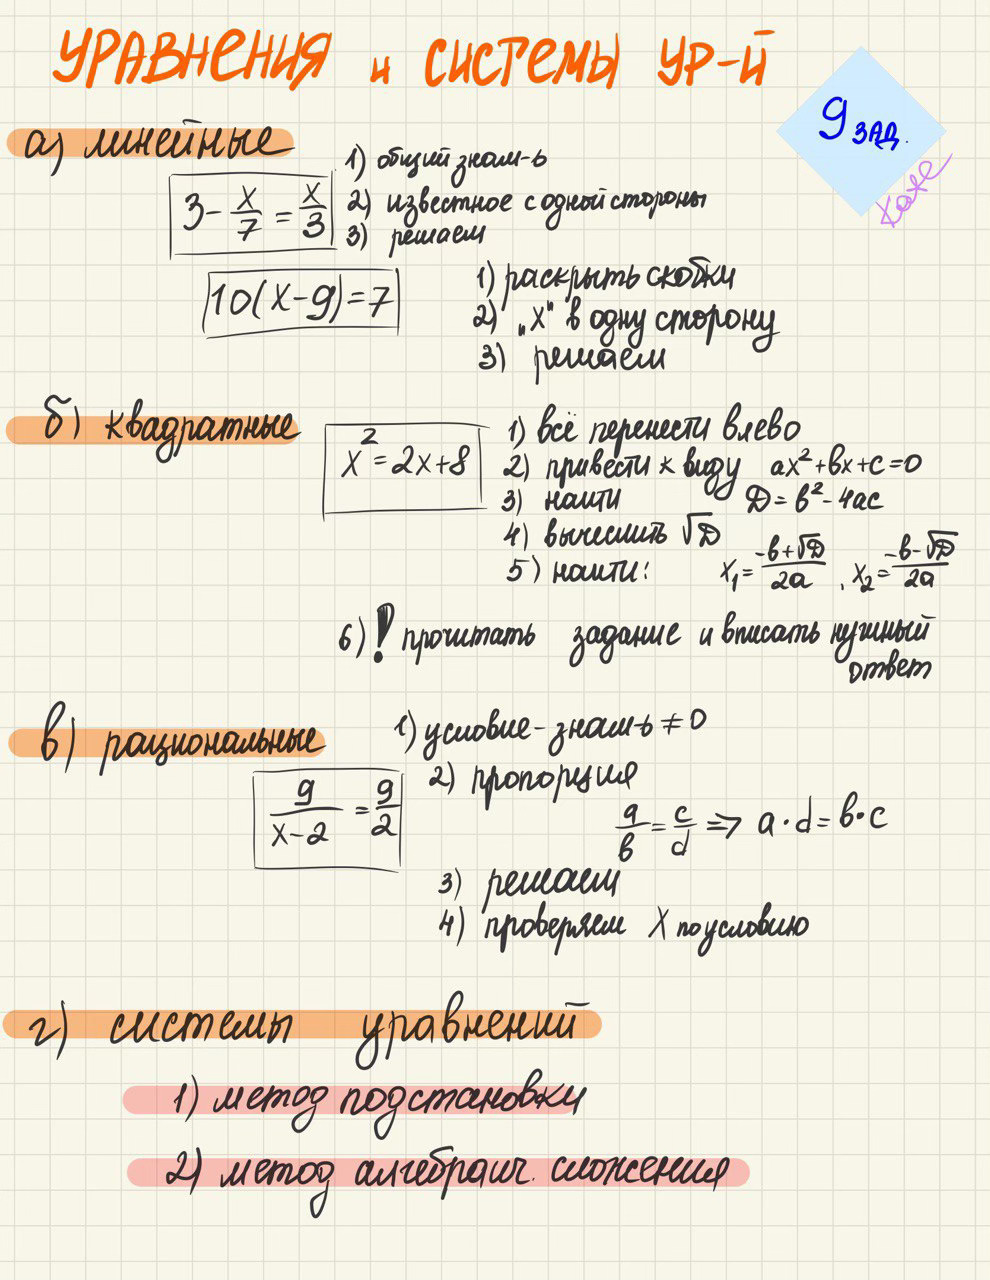 УРАВНЕНИЯ и СИСТЕМЫ УР-Й
9 ЗАД.
тоже
а) линейные
3 - x/7 = x/3
1) общий знам-ь
2) известное с одной стороны
3) решаем
10(x-9)=7
1) раскрыть скобки
2) „x" в одну сторону
3) решаем
б) квадратные
x² = 2x+8
1) всё перенести влево
2) привести к виду ax²+bx+c=0
3) найти D = b² - 4ac
4) вычислить √D
5) найти: x₁ = (-b+√D)/2a , x₂ = (-b-√D)/2a
6) ! прочитать задание и вписать нужный
ответ
в) рациональные
9/(x-2) = 9/2
1) условие - знам-ь ≠ 0
2) пропорция
a/b = c/d => a·d = b·c
3) решаем
4) проверяем x по условию
г) системы уравнений
1) метод подстановки
2) метод алгебраич. сложения